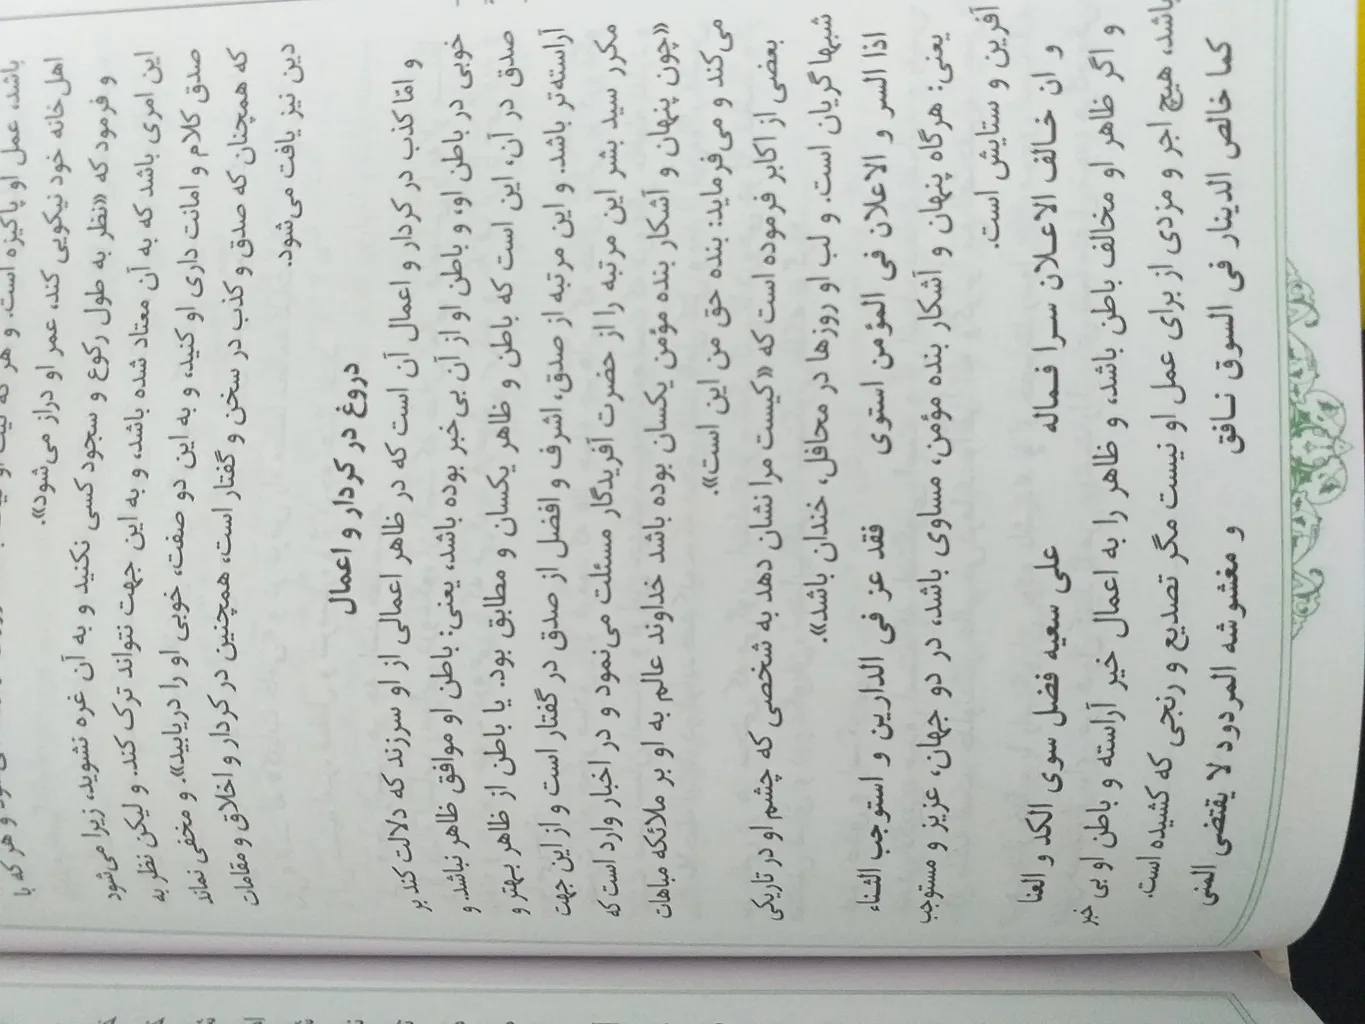 باشد، عمل او پاکیزه است. و هر که نیت او
و هر که با
اهل خانه خود نیکویی کند، عمر او دراز می‌شود».
و فرمود که «نظر به طول رکوع و سجود کسی نکنید و به آن غره نشوید، زیرا می‌شود
این امری باشد که به آن معتاد شده باشد، و به این جهت نتواند ترک کند. و لیکن نظر به
صدق کلام و امانت داری او کنید، و به این دو صفت، خوبی او را دریابید». و مخفی نماند
که همچنان که صدق و کذب در سخن و گفتار است، همچنین در کردار و اخلاق و مقامات
دین نیز یافت می‌شود.
دروغ در کردار و اعمال
و امّا کذب در کردار و اعمال آن است که در ظاهر اعمالی از او سرزند که دلالت کند بر
خوبی در باطن او، و باطن او از آن بی‌خبر بوده باشد، یعنی: باطن او موافق ظاهر نباشد. و
صدق در آن، این است که باطن و ظاهر یکسان و مطابق بود. یا باطن از ظاهر بهتر و
آراسته‌تر باشد. و این مرتبه از صدق، اشرف و افضل از صدق در گفتار است و از این جهت
مکرر سید بشر این مرتبه را از حضرت آفریدگار مسئلت می‌نمود و در اخبار وارد است که
«چون پنهان و آشکار بنده مؤمن یکسان بوده باشد خداوند عالم به او بر ملائکه مباهات
می‌کند و می‌فرماید: بنده حق من این است».
بعضی از اکابر فرموده است که «کیست مرا نشان دهد به شخصی که چشم او در تاریکی
شبها گریان است. و لب او روزها در محافل، خندان باشد».
اذا السر و الاعلان فی المؤمن استوی فقد عز فی الدارین و استوجب الثناء
یعنی: هرگاه پنهان و آشکار بنده مؤمن، مساوی باشد، در دو جهان، عزیز و مستوجب
آفرین و ستایش است.
و ان خالف الاعلان سرا فماله علی سعیه فضل سوی الکد و العنا
و اگر ظاهر او مخالف باطن باشد، و ظاهر را به اعمال خیر آراسته و باطن او بی خبر
باشد، هیچ اجر و مزدی از برای عمل او نیست مگر تصدیع و رنجی که کشیده است.
کما خالص الدینار فی السوق نافق و مغشوشه المردود لا یقتضی المنی